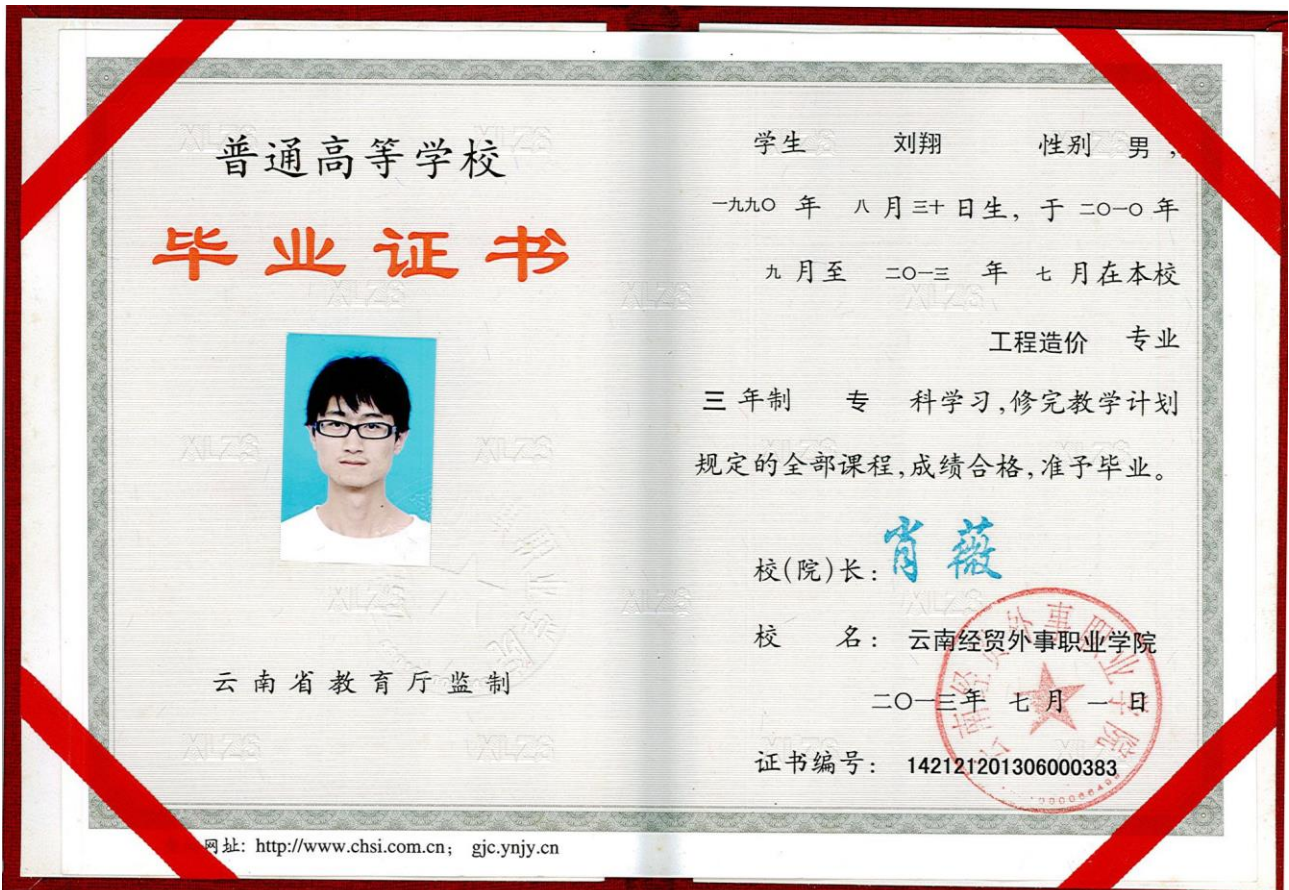 普通高等学校
毕业证书
云南省教育厅监制
网址: http://www.chsi.com.cn; gjc.ynjy.cn
学生 刘翔 性别 男,
一九九〇 年 八 月 三十 日生, 于 二〇一〇 年
九 月至 二〇一三 年 七 月在本校
工程造价 专业
三 年制 专 科学习,修完教学计划
规定的全部课程,成绩合格,准予毕业。
校(院)长: 肖薇
校 名: 云南经贸外事职业学院
二〇一三年 七 月 一 日
证书编号: 142121201306000383
云南经贸外事职业学院
XLZS